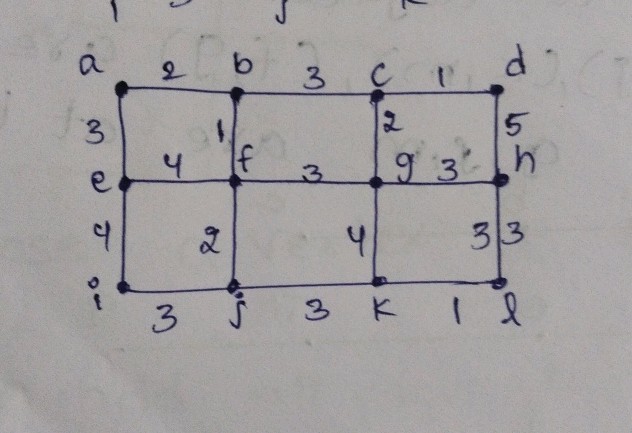 a 2 b 3 c 1 d
3 1 2 5
e 4 f 3 g 3 h
4 2 4 3 3
i 3 j 3 k 1 l